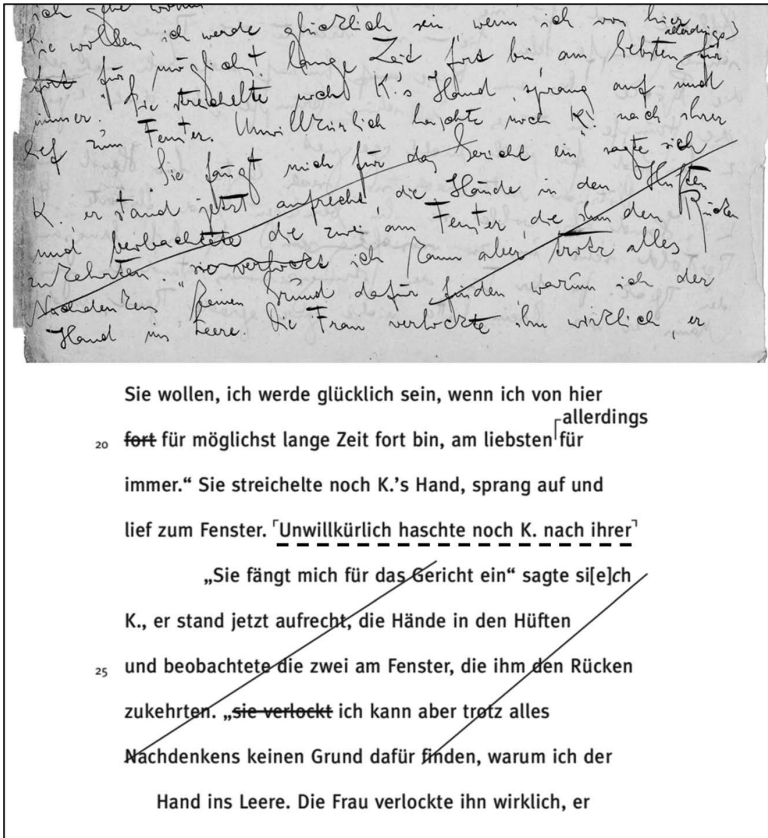 ich
Sie wollen ich werde glücklich sein wenn ich von hier
allerdings
fort für möglichst lange Zeit fort bin am liebsten für
immer. Sie streichelte noch K.'s Hand, sprang auf und
lief zum Fenster. Unwillkürlich haschte noch K. nach ihrer
Sie fängt mich für das Gericht ein" sagte sich
K. er stand jetzt aufrecht, die Hände in den Hüften
und beobachtete die zwei am Fenster, die ihm den Rücken
zukehrten. „sie verlockt ich kann aber trotz alles
Nachdenkens keinen Grund dafür finden warum ich der
Hand ins Leere. Die Frau verlockte ihn wirklich, er
Sie wollen, ich werde glücklich sein, wenn ich von hier
allerdings
20 fort für möglichst lange Zeit fort bin, am liebsten für
immer.“ Sie streichelte noch K.’s Hand, sprang auf und
lief zum Fenster. ⌜Unwillkürlich haschte noch K. nach ihrer⌝
„Sie fängt mich für das Gericht ein“ sagte si[e]ch
K., er stand jetzt aufrecht, die Hände in den Hüften
25 und beobachtete die zwei am Fenster, die ihm den Rücken
zukehrten. „sie verlockt ich kann aber trotz alles
Nachdenkens keinen Grund dafür finden, warum ich der
Hand ins Leere. Die Frau verlockte ihn wirklich, er